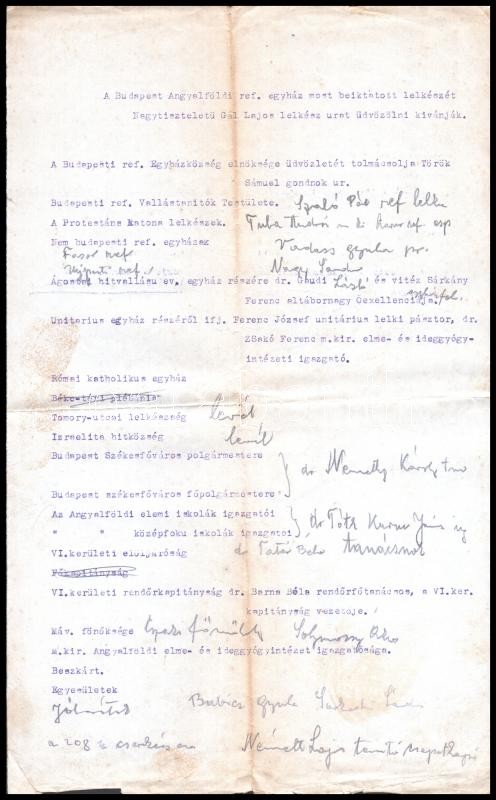 A Budapest Angyalföldi ref. egyház most beiktatott lelkészét
Nagytiszteletü Gál Lajos lelkész urat üdvözölni kivánják.
A Budapesti ref. Egyházközség elnöksége üdvözletét tolmácsolja Török
Sámuel gondnok ur.
Budapesti ref. Vallástanitók Testülete. Szabó Pál ref lelk
A Protestáns Katona lelkészek.
Nem budapesti ref. egyházak Vadass gyula
Fasor ref
Ujpesti ref. Nagy Sándor
Ágostai hitvallásu ev. egyház részére dr. Gaudi László és vitéz Sárkány
Ferenc altábornagy Őexcellenciája.
Unitarius egyház részéről ifj. Ferenc József unitárius lelki pásztor, dr.
Zsakó Ferenc m.kir. elme- és ideggyógy-
intézeti igazgató.
Római katholikus egyház
Béke-téri plébánia
Tomory-utcai lelkészség levél
Izraelita hitközség levél
Budapest Székesfőváros polgármestere dr Némethy Károly
Budapest székesfőváros főpolgármestere
Az Angyalföldi elemi iskolák igazgatói dr Tóth
" " középfoku iskolák igazgatói
VI.kerületi elöljáróság dr Tatár Béla tanácsnok
Főkapitányság
VI.kerületi rendőrkapitányság dr. Barna Béla rendőrfőtanácsos, a VI.ker.
kapitányság vezetője.
Máv. főnöksége Solymossy
M.kir. Angyalföldi elme- és ideggyógyintézet igazgatósága.
Beszkárt.
Egyesületek
Babics gyula
a 208 sz cserkész Németh Lajos tanitó